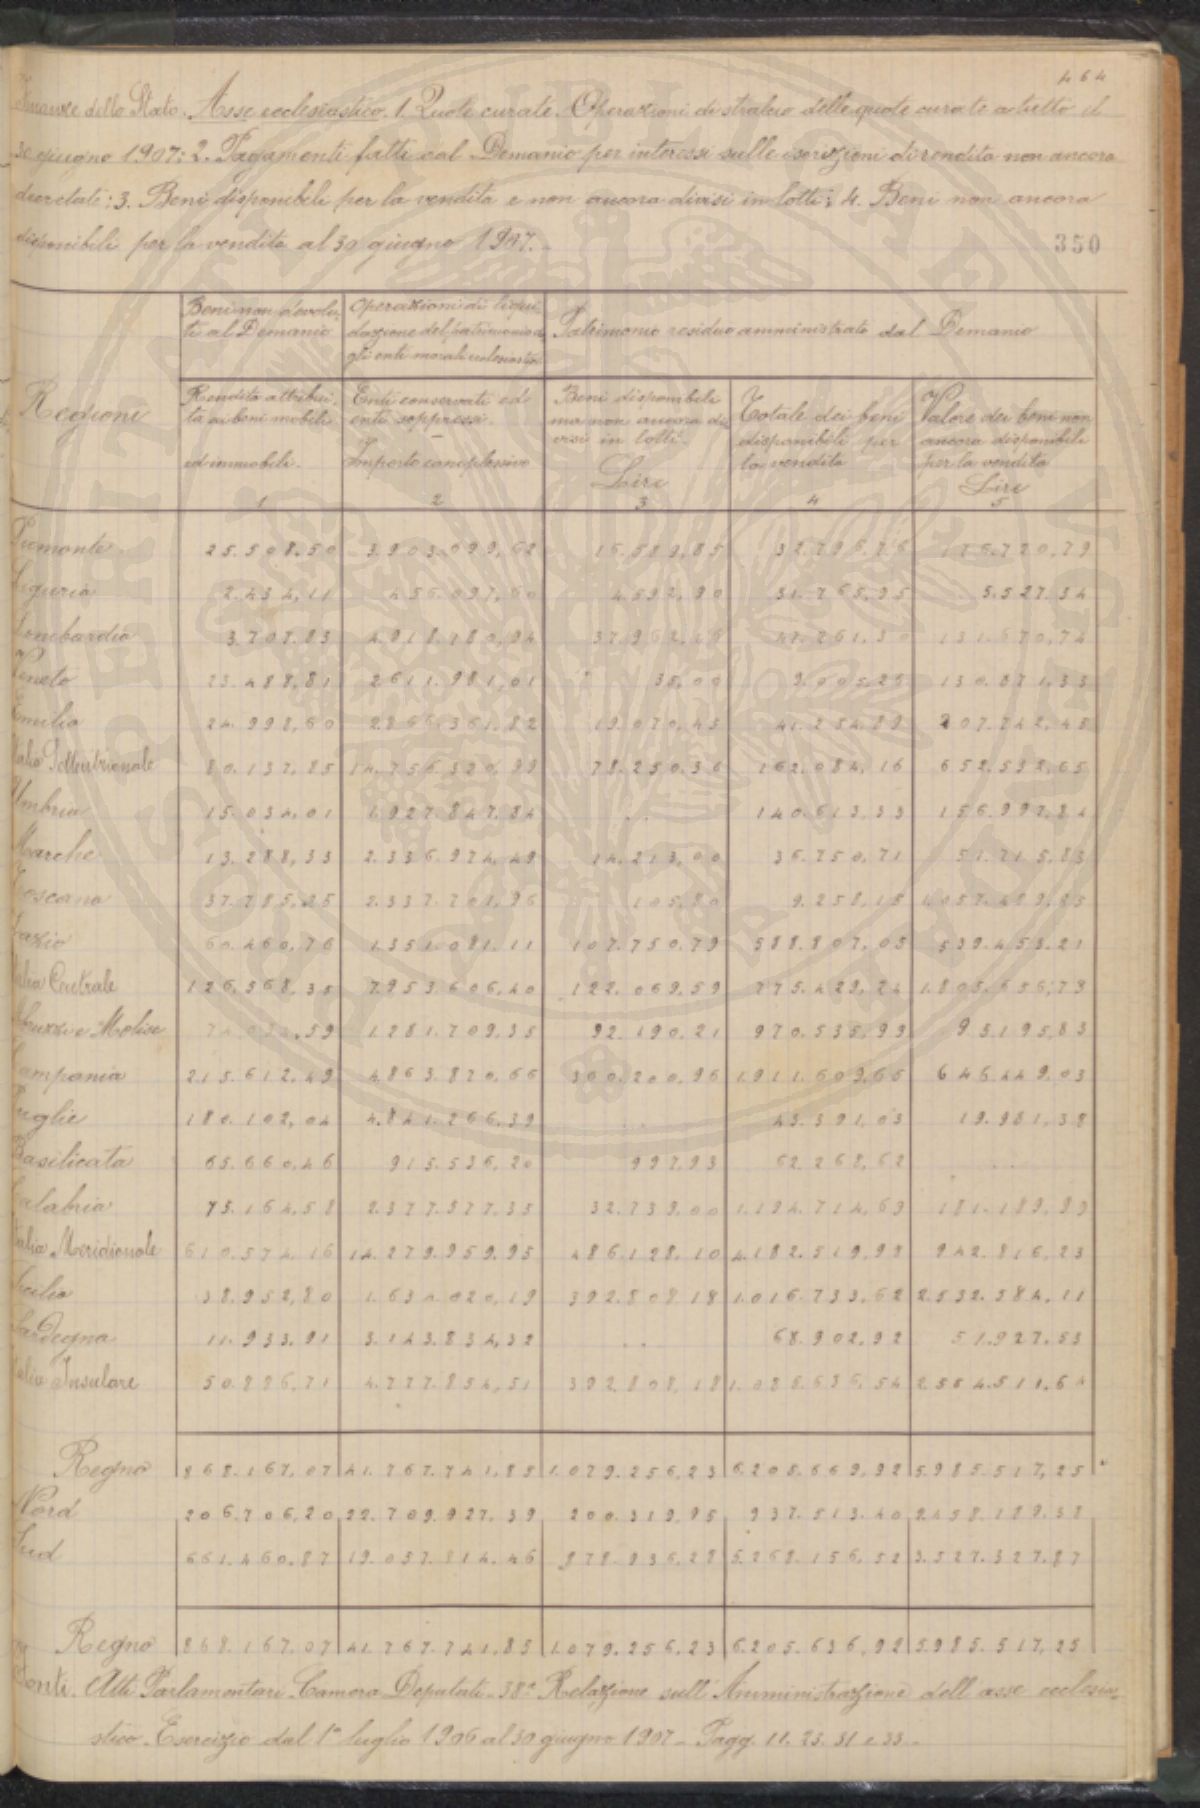 464
Finanze dello Stato. Asse ecclesiastico. 1. Quote curate. Operazioni di stralcio delle quote curate a tutto il
30 giugno 1907: 2. Pagamenti fatti dal Demanio per interessi sulle iscrizioni di rendita non ancora
decretate: 3. Beni disponibili per la vendita e non ancora divisi in lotti; 4. Beni non ancora
disponibili per la vendita al 30 giugno 1907.
350
Regioni
Beni non devolu-
ti al Demanio
Rendita attribui-
ta ai beni mobili
ed immobili.
1
Operazioni di liqui-
dazione del patrimonio
gli enti morali ecclesiastici
Enti conservati ed
enti soppressi.
Importo complessivo
2
Patrimonio residuo amministrato dal Demanio
Beni disponibili
ma non ancora di-
visi in lotti.
Lire
3
Totale dei beni
disponibili per
la vendita
4
Valore dei beni non
ancora disponibili
per la vendita
Lire
5
Piemonte 25.508,50 3.903.099,62 16.589,85 32.796,76 176.720,79
Liguria 2.434,11 456.097,60 4.592,90 31.765,95 5.527,34
Lombardia 3.707,83 4.918.780,94 37.962,16 47.261,30 131.670,74
Veneto 23.488,81 2.611.981,01 35,00 9.005,25 130.871,33
Emilia 24.998,60 2.866.361,82 19.070,45 41.254,89 207.742,45
Italia Settentrionale 80.137,85 14.756.320,99 78.250,36 162.084,16 652.532,65
Umbria 15.034,01 1.927.847,84 .. 140.613,33 156.997,84
Marche 13.288,33 2.336.974,49 14.213,00 36.750,71 51.715,83
Toscana 37.785,25 2.337.701,96 105,80 9.258,15 1.057.489,85
Lazio 60.460,76 1.351.081,11 107.750,79 588.807,05 539.453,21
Italia Centrale 126.568,35 7.953.606,40 122.069,59 775.429,24 1.805.656,73
Abruzzi e Molise ,59 1.281.709,35 92.190,21 970.535,99 95.195,83
Campania 215.612,49 4.863.870,66 360.200,96 1.911.609,65 646.449,03
Puglie 180.102,04 4.841.266,39 .. 43.391,03 19.981,38
Basilicata 65.660,46 915.536,20 997,93 62.268,62 ...
Calabria 75.164,58 2.377.577,35 32.739,00 1.194.714,69 181.189,99
Italia Meridionale 610.574,16 14.279.959,95 486.128,10 4.182.519,98 942.816,23
Sicilia 38.952,80 1.634.020,19 392.808,18 1.016.733,62 2.532.584,11
Sardegna 11.933,91 3.143.834,32 .. 68.902,92 51.927,53
Italia Insulare 50.886,71 4.777.854,51 392.808,18 1.085.636,54 2.584.511,64
Regno 868.167,07 41.767.741,85 1.079.256,23 6.205.669,92 5.985.517,25
Nord 206.706,20 22.709.927,39 200.319,95 937.513,40 2.458.189,38
Sud 661.460,87 19.057.814,46 878.936,28 5.268.156,52 3.527.327,87
Regno 868.167,07 41.767.741,85 1.079.256,23 6.205.636,92 5.985.517,25
Fonti. Atti Parlamentari. Camera Deputati - 38ª Relazione sull'Amministrazione dell'asse ecclesia-
stico. Esercizio dal 1º luglio 1906 al 30 giugno 1907 - Pagg. 11. 25. 31 e 33.